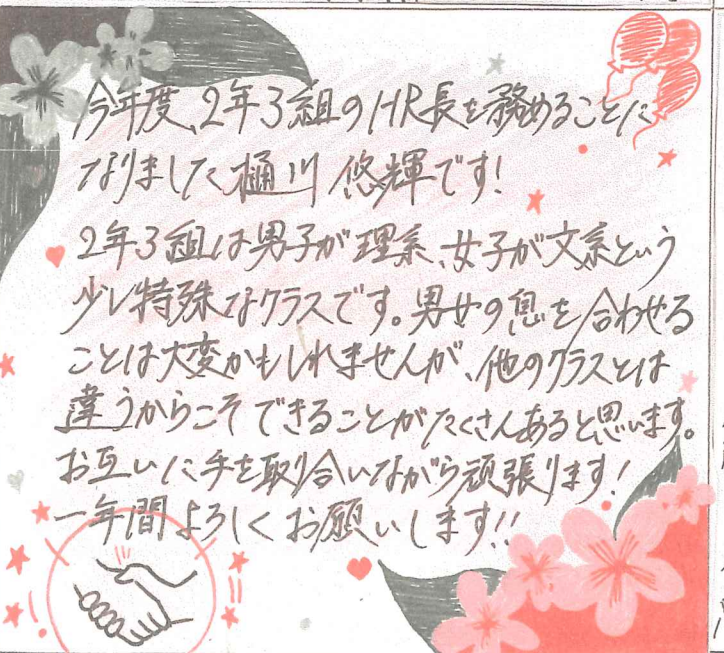 今年度、2年3組のHR長を務めることに
なりました樋川悠輝です!
2年3組は男子が理系、女子が文系という
少し特殊なクラスです。男女の息を合わせる
ことは大変かもしれませんが、他のクラスとは
違うからこそできることがたくさんあると思います。
お互いに手を取り合いながら頑張ります!
一年間よろしくお願いします!!